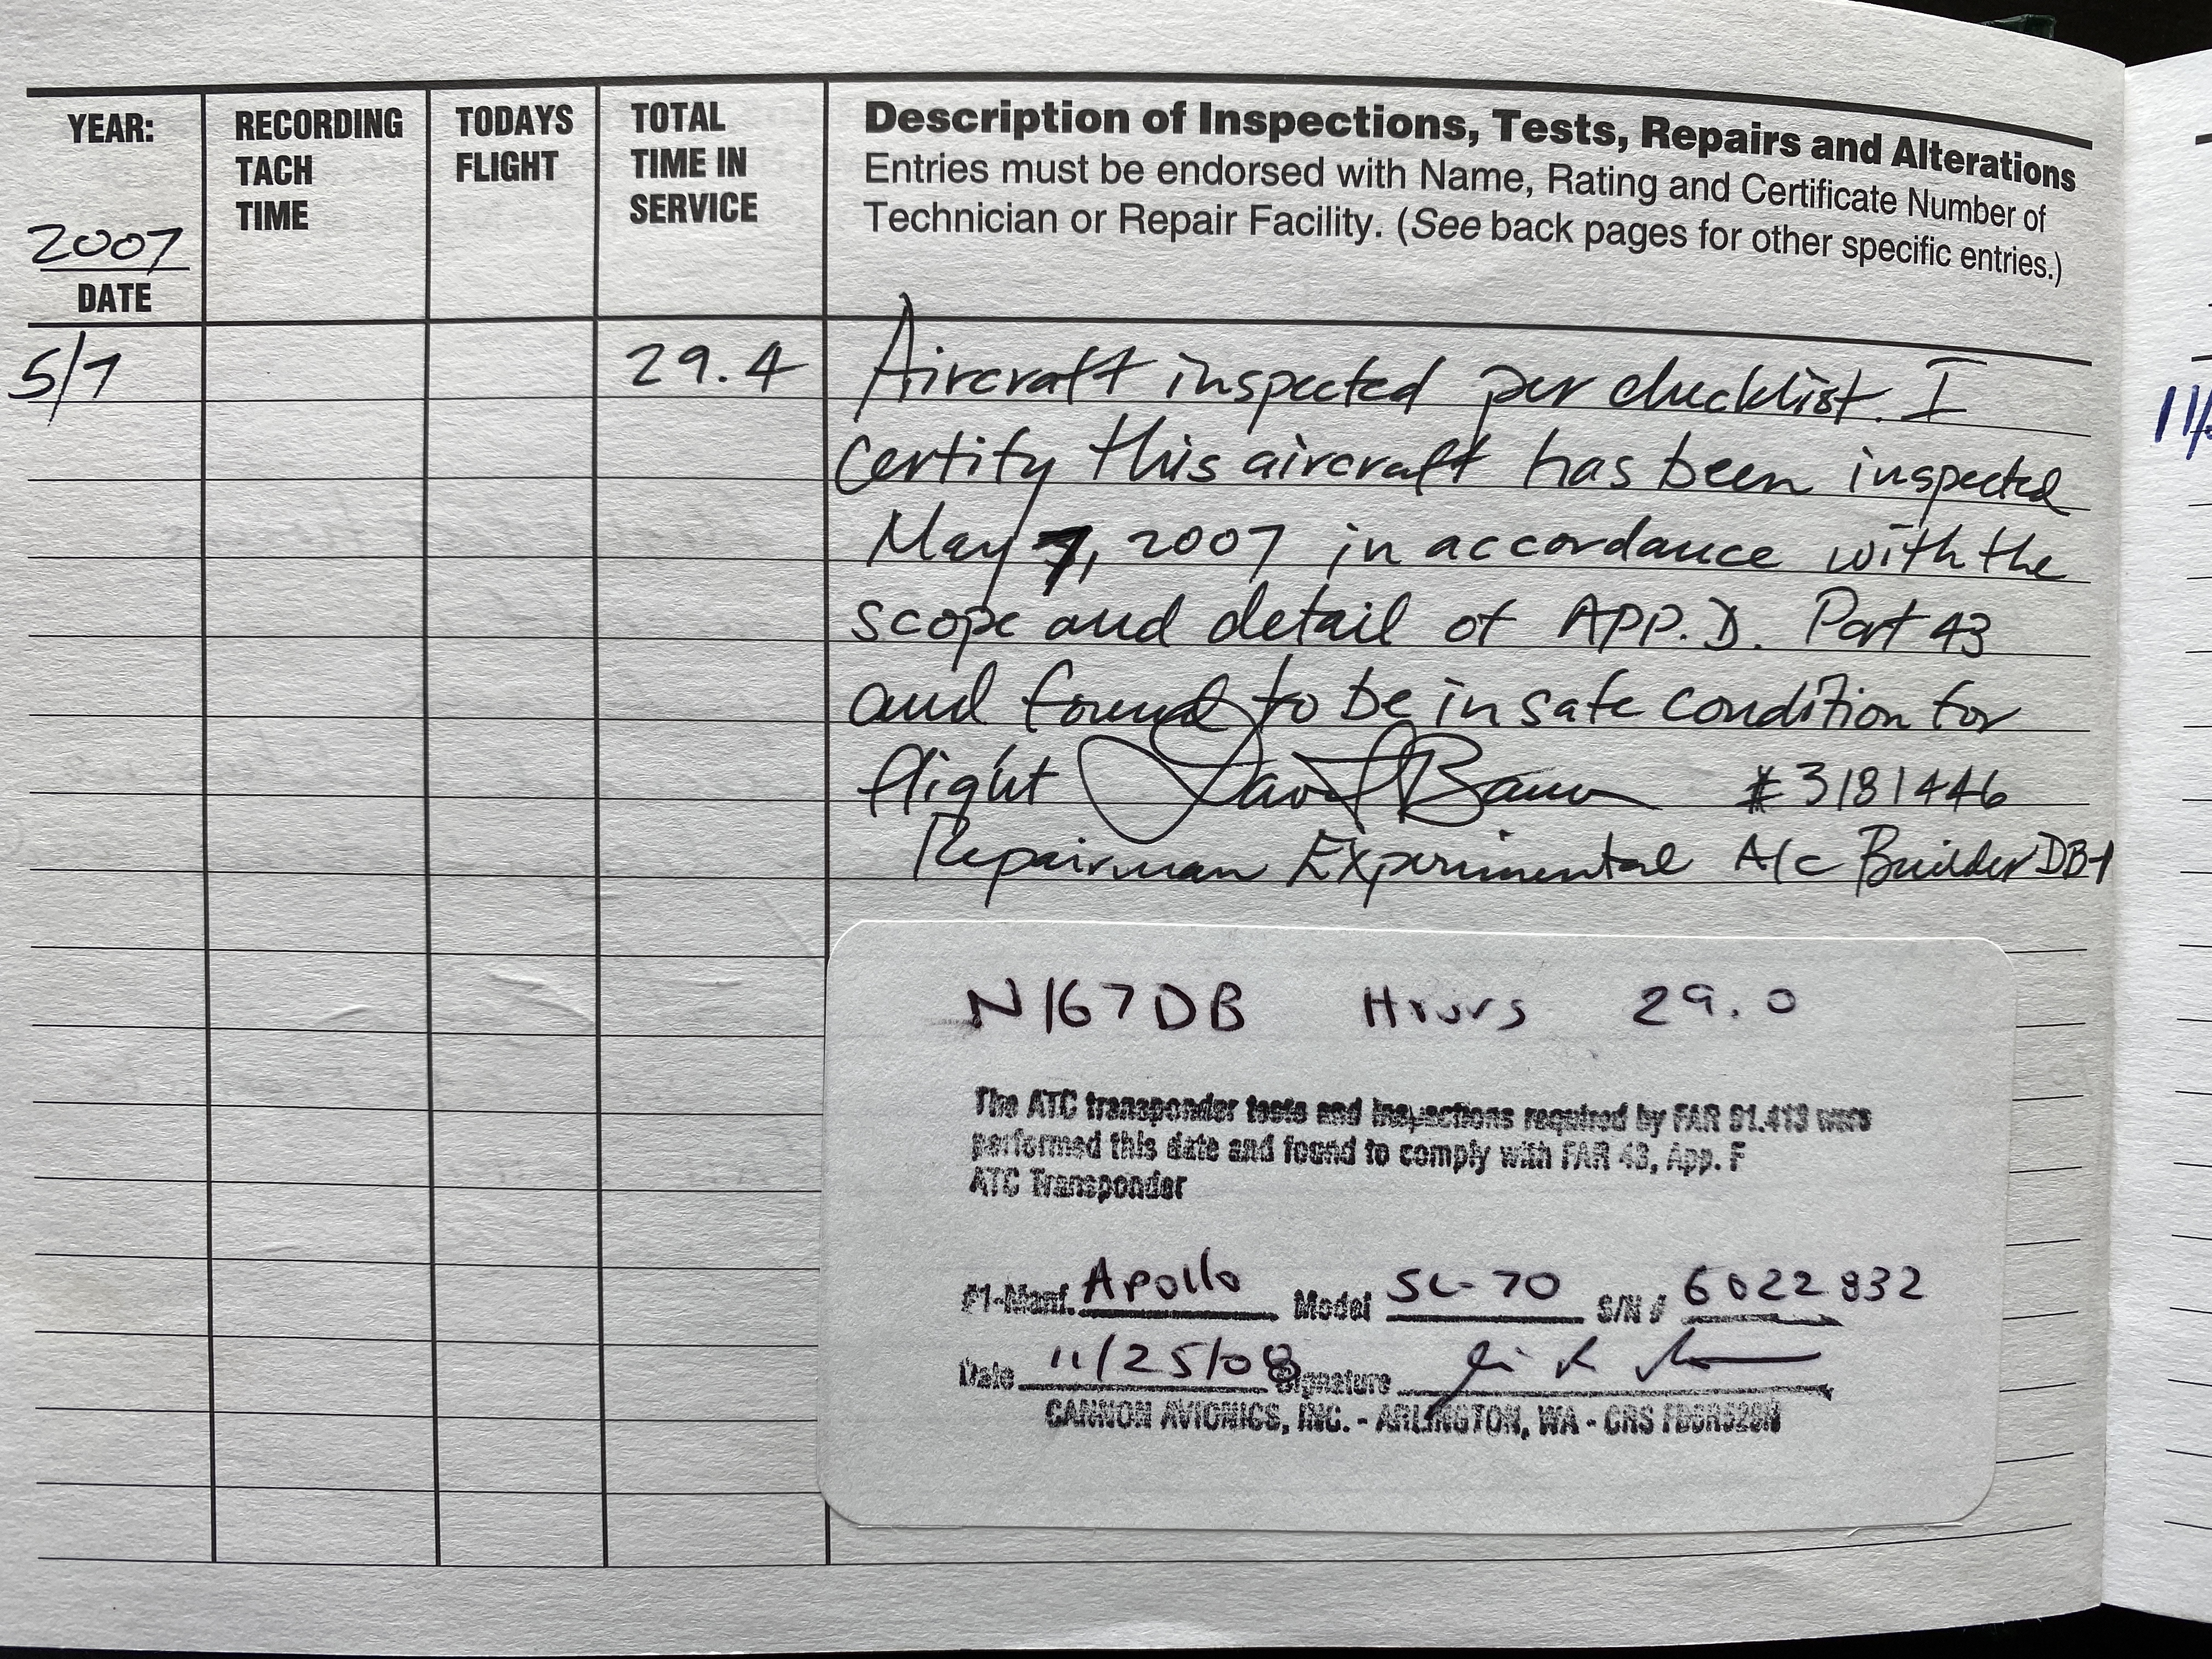 YEAR:
2007
DATE
RECORDING
TACH
TIME
TODAYS
FLIGHT
TOTAL
TIME IN
SERVICE
Description of Inspections, Tests, Repairs and Alterations
Entries must be endorsed with Name, Rating and Certificate Number of
Technician or Repair Facility. (See back pages for other specific entries.)
5/7 29.4 Aircraft inspected per checklist. I
certify this aircraft has been inspected
May 7, 2007 in accordance with the
scope and detail of APP. D. Part 43
and found to be in safe condition for
flight David #3181446
Repairman Experimental A/c Builder DB-1
N167DB Hours 29.0
The ATC transponder tests and inspections required by FAR 91.413 were
performed this date and found to comply with FAR 43, App. F
ATC Transponder
#1-Manf. Apollo Model SL-70 S/N # 6022832
Date 11/25/08 Signature
CANNON AVIONICS, INC. - ARLINGTON, WA - CRS
11/